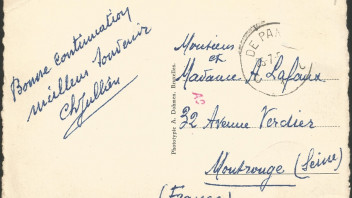 Bonne continuation
meilleur souvenir
Ch Jullien
Phototypie A. Dohmen, Bruxelles.
DE PAN
Monsieur
et
Madame A. Lafaye
32 Avenue Verdier
Montrouge (Seine)
(France)